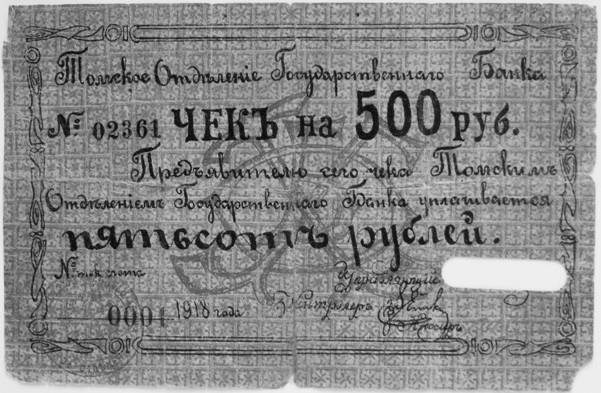 Томское Отдѣленіе Государственнаго Банка
№ 02361 ЧЕКЪ на 500 руб.
Предъявителю сего чека Томскимъ
Отдѣленіемъ Государственнаго Банка уплачивается
пятьсотъ рублей.
№ тек. счета Управляющій
0001 1918 года Контролеръ